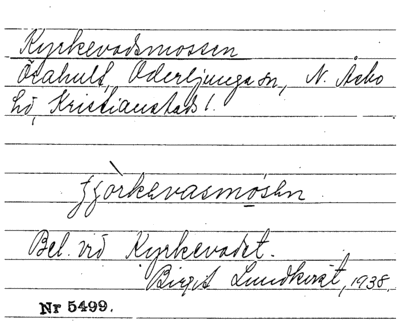 Kyrkevadsmossen
Örahult, Oderljunga sn, N. Åsbo
hd, Kristianstads l.
fjòrkevasmósen
Bel. vid Kyrkevadet.
Birgit Lundkvist, 1938.
Nr 5499.